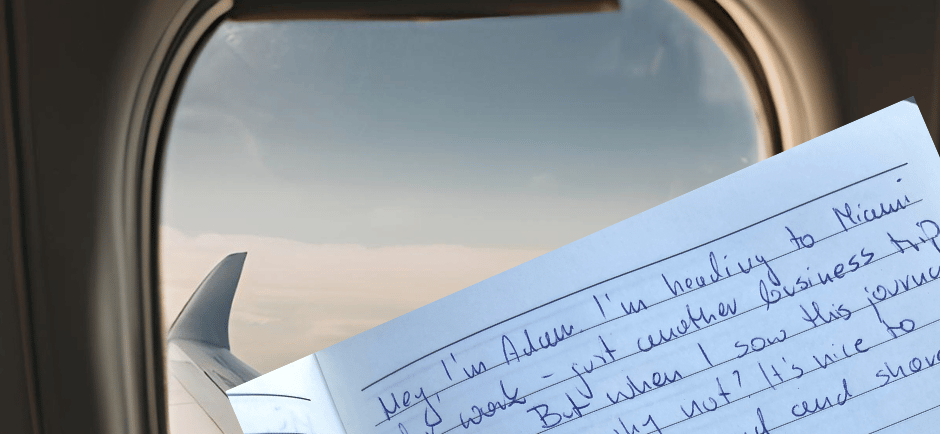 Hey, I'm Adam. I'm heading to Miami
work - just another business trip
But when I saw this journ
why not? It's nice to
and shar